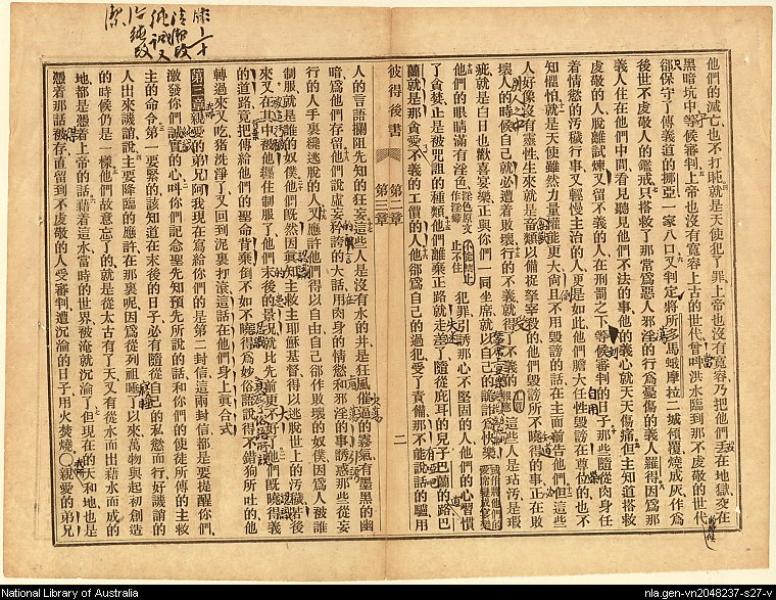 他們的滅亡也不打盹就是天使犯了罪上帝也沒有寬容乃把他們丟在地獄交在
黑暗坑中等候審判上帝也沒有寬容上古的世代曾叫洪水臨到那不虔敬的世代
卻保守了傳義道的挪亞一家八口又判定將所多馬蛾摩拉二城傾覆燒成灰作爲
後世不虔敬人的鑑戒只搭救了那常爲惡人邪淫的行爲憂傷的義人羅得因爲那
義人住在他們中間看見聽見他們不法的事他的義心就天天傷痛但主知道搭救
虔敬的人脫離試煉又留不義的人在刑罰之下等候審判的日子那些隨從肉身任
着情慾的汚穢行事又輕慢主治的人更是如此他們膽大任性毀謗在尊位的也不
知懼怕就是天使雖然力量權能更大尚且不用毀謗的話在主面前告他們但這些
人好像沒有靈性生來就是畜類以備捉拿宰殺的他們毀謗所不曉得的事正在敗
壞人的時候自己就必遭着敗壞行的不義就得了不義的 這些人是玷汚是瑕
疵就是白日也歡喜宴樂正與你們一同坐席就以自己的詭詐爲快樂
他們的眼睛滿有淫色淫色原文作淫婦止不住犯罪引誘那心不堅固的人他們的心習慣
了貪婪正是被咒詛的種類他們離棄正路就走差了隨從庇耳的兒子巴蘭的路巴
蘭就是那貪愛不義的工價的人他卻爲自己的過犯受了責備那不能說話的驢用
彼得後書 第二章 第三章 二
人的言語攔阻先知的狂妄這些人是沒有水的井是狂風催逼的霧氣有墨黑的幽
暗爲他們存留他們說虛妄矜誇的大話用肉身的情慾和邪淫的事誘惑那些從妄
行的人手裏纔逃脫的人又應許他們得以自由自己卻作敗壞的奴僕因爲人被誰
制服就是誰的奴僕他們旣然因眞知主救主耶穌基督得以逃脫世上的汚穢若後
來又在其中被他纏住制服了他們末後的景況就比先前更不好了他們旣曉得義
的道路竟把傳給他們的聖命背棄倒不如不曉得爲妙俗語說得不錯狗所吐的他
轉過來又吃猪洗淨了又回到泥裏打滾這話在他們身上眞合式
第三章親愛的弟兄阿我現在寫給你們的是第二封信這兩封信都是要提醒你們
激發你們誠實的心叫你們記念聖先知預先所說的話和你們的使徒所傳的主救
主的命令第一要緊的該知道在末後的日子必有隨從自己的私慾而行好譏誚的
人出來譏誚說主要降臨的應許在那裏呢因爲從列祖睡了以來萬物與起初創造
的時候仍是一樣他們故意忘了的就是從太古有了天又有從水而出藉水而成的
地都是憑着上帝的話藉着這水當時的世界被淹就沉淪了但現在的天和地也是
憑着那話被存直留到不虔敬的人受審判遭沉淪的日子用火焚燒○親愛的弟兄
National Library of Australia
nla.gen-vn2048237-s27-v